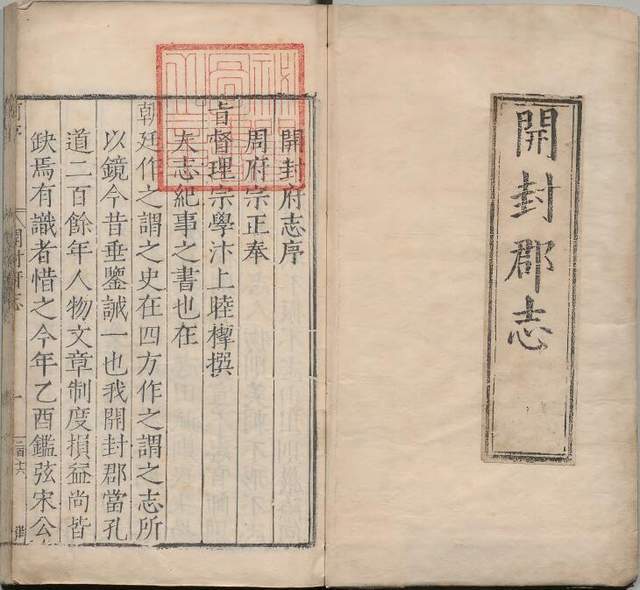 開封郡志
開封府志序
周府宗正奉
旨督理宗學汴上睦㮮撰
夫志紀事之書也在
朝廷作之謂之史在四方作之謂之志所
以鏡今昔垂鑒誡一也我開封郡當孔
道二百餘年人物文章制度損益尚皆
缺焉有識者惜之今年乙酉鑑弦宋公
開封府志